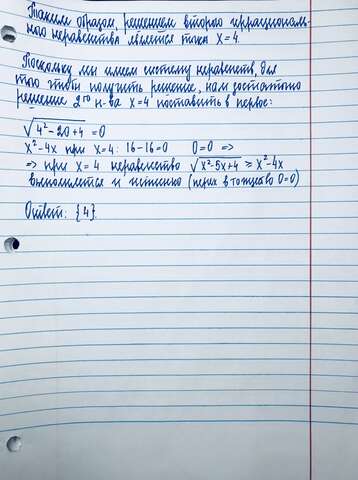 Таким образом, решением второго иррациональ-
ного неравенства является точка x=4.
Поскольку мы имеем систему неравенств, для
того чтобы получить решение, нам достаточно
решение 2го н-ва x=4 поставить в первое:
√4²-20+4 = 0
x²-4x при x=4: 16-16=0 0=0 =>
=> при x=4 неравенство √x²-5x+4 ≥ x²-4x
выполняется и истинно (перех. в тождество 0=0)
Ответ: {4}.